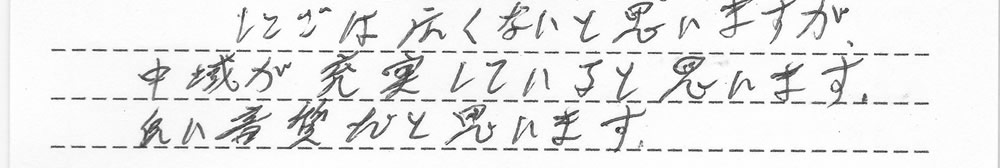 レンジは広くないと思いますが、
中域が充実していると思います。
良い音質だと思います。